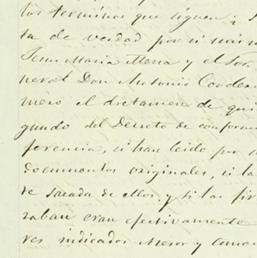 los terminos que siguen: S
ta de verdad por si mism
Jesus Maria Mena y el Se
neral Don Antonio Corder
mero el dictamen de qui
gundo del Decreto de conform
ferencia, si han leido por
documentos originales, si la
te sacada de ellos; y si las fir
zaban eran efectivamente
res indicados Asesor y Coman